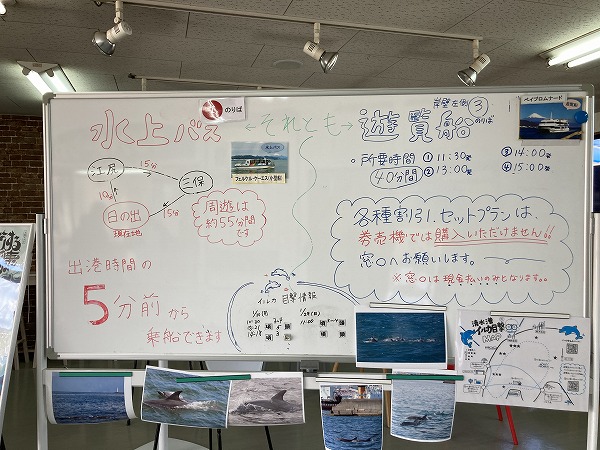 のりば
水上バス
←それとも→
遊覧船
岸壁左側③
のりば
ベイプロムナード
江尻
15分
三保
10分
日の出
15分
現在地
周遊は
約55分間
です
出港時間の
5分前から
乗船できます
。所要時間
40分間
①11:30発
②13:00発
③14:00発
④15:00発
各種割引、セットプランは、
券売機では購入いただけません!!
窓口へお願いします。
※窓口は現金払いのみとなります。
イルカ目撃情報
清水港
イルカ目撃
MAP